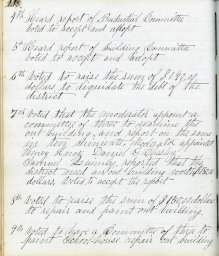 4th Heard report of Prudential Committee
Voted to accept and adopt
5th Heard report of Building Committee
voted to accept and adopt
6th Voted to raise the sum of
dollars to liquidate the debt of the
district
7th Voted that the moderator appoint a
committee of three to examine the
out building, and report on the same
in ten minutes. Moderator appointed
Henry
reported that the
district need an out building worth
dollars Voted to accept the report
8th Voted to raise the sum of dollars
to repair and paint out building
9th Voted to have a Committee of three to
paint School house repair out building